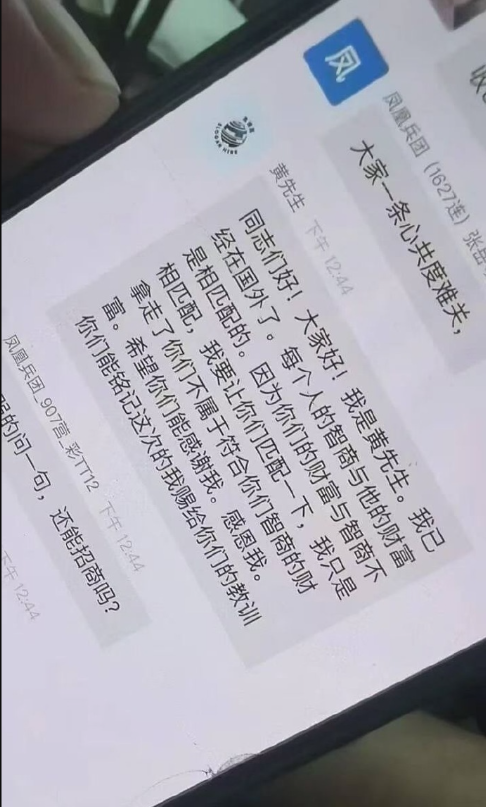 收
凤
凤凰兵团（1627连）张
大家一条心共度难关，
黄先生 下午 12:44
同志们好！大家好！我是黄先生。我已
经在国外了。每个人的智商与他的财富
是相匹配的。因为你们的财富与智商不
相匹配，我要让你们匹配一下，我只是
拿走了你们不属于符合你们智商的财
富。希望你们能感谢我。感恩我。
你们能铭记这次的我赐给你们的教训
凤凰兵团_907营_彩TT12 下午 12:44
的问一句，还能招商吗？
下午 12:44